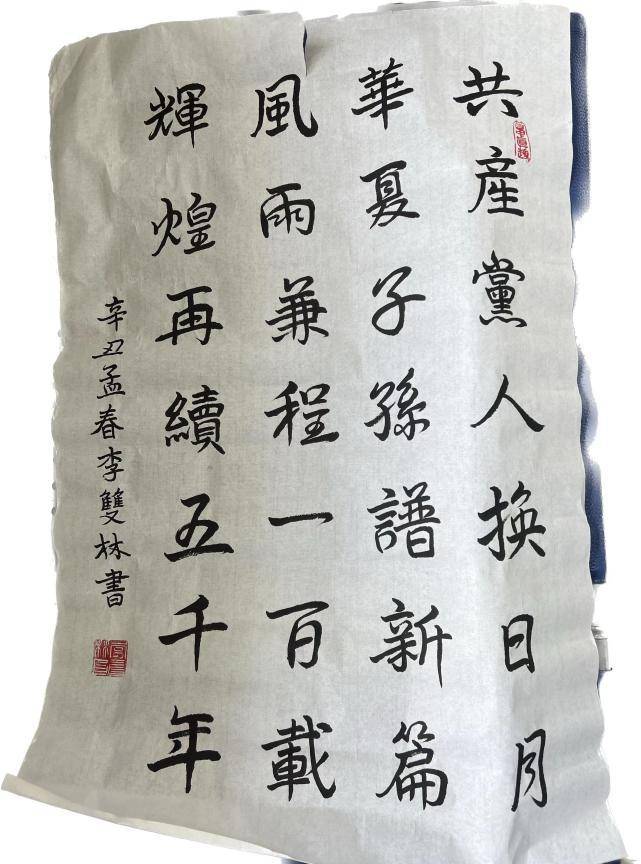 共產黨人換日月
華夏子孫譜新篇
風雨兼程一百載
輝煌再續五千年
辛丑孟春李雙林書